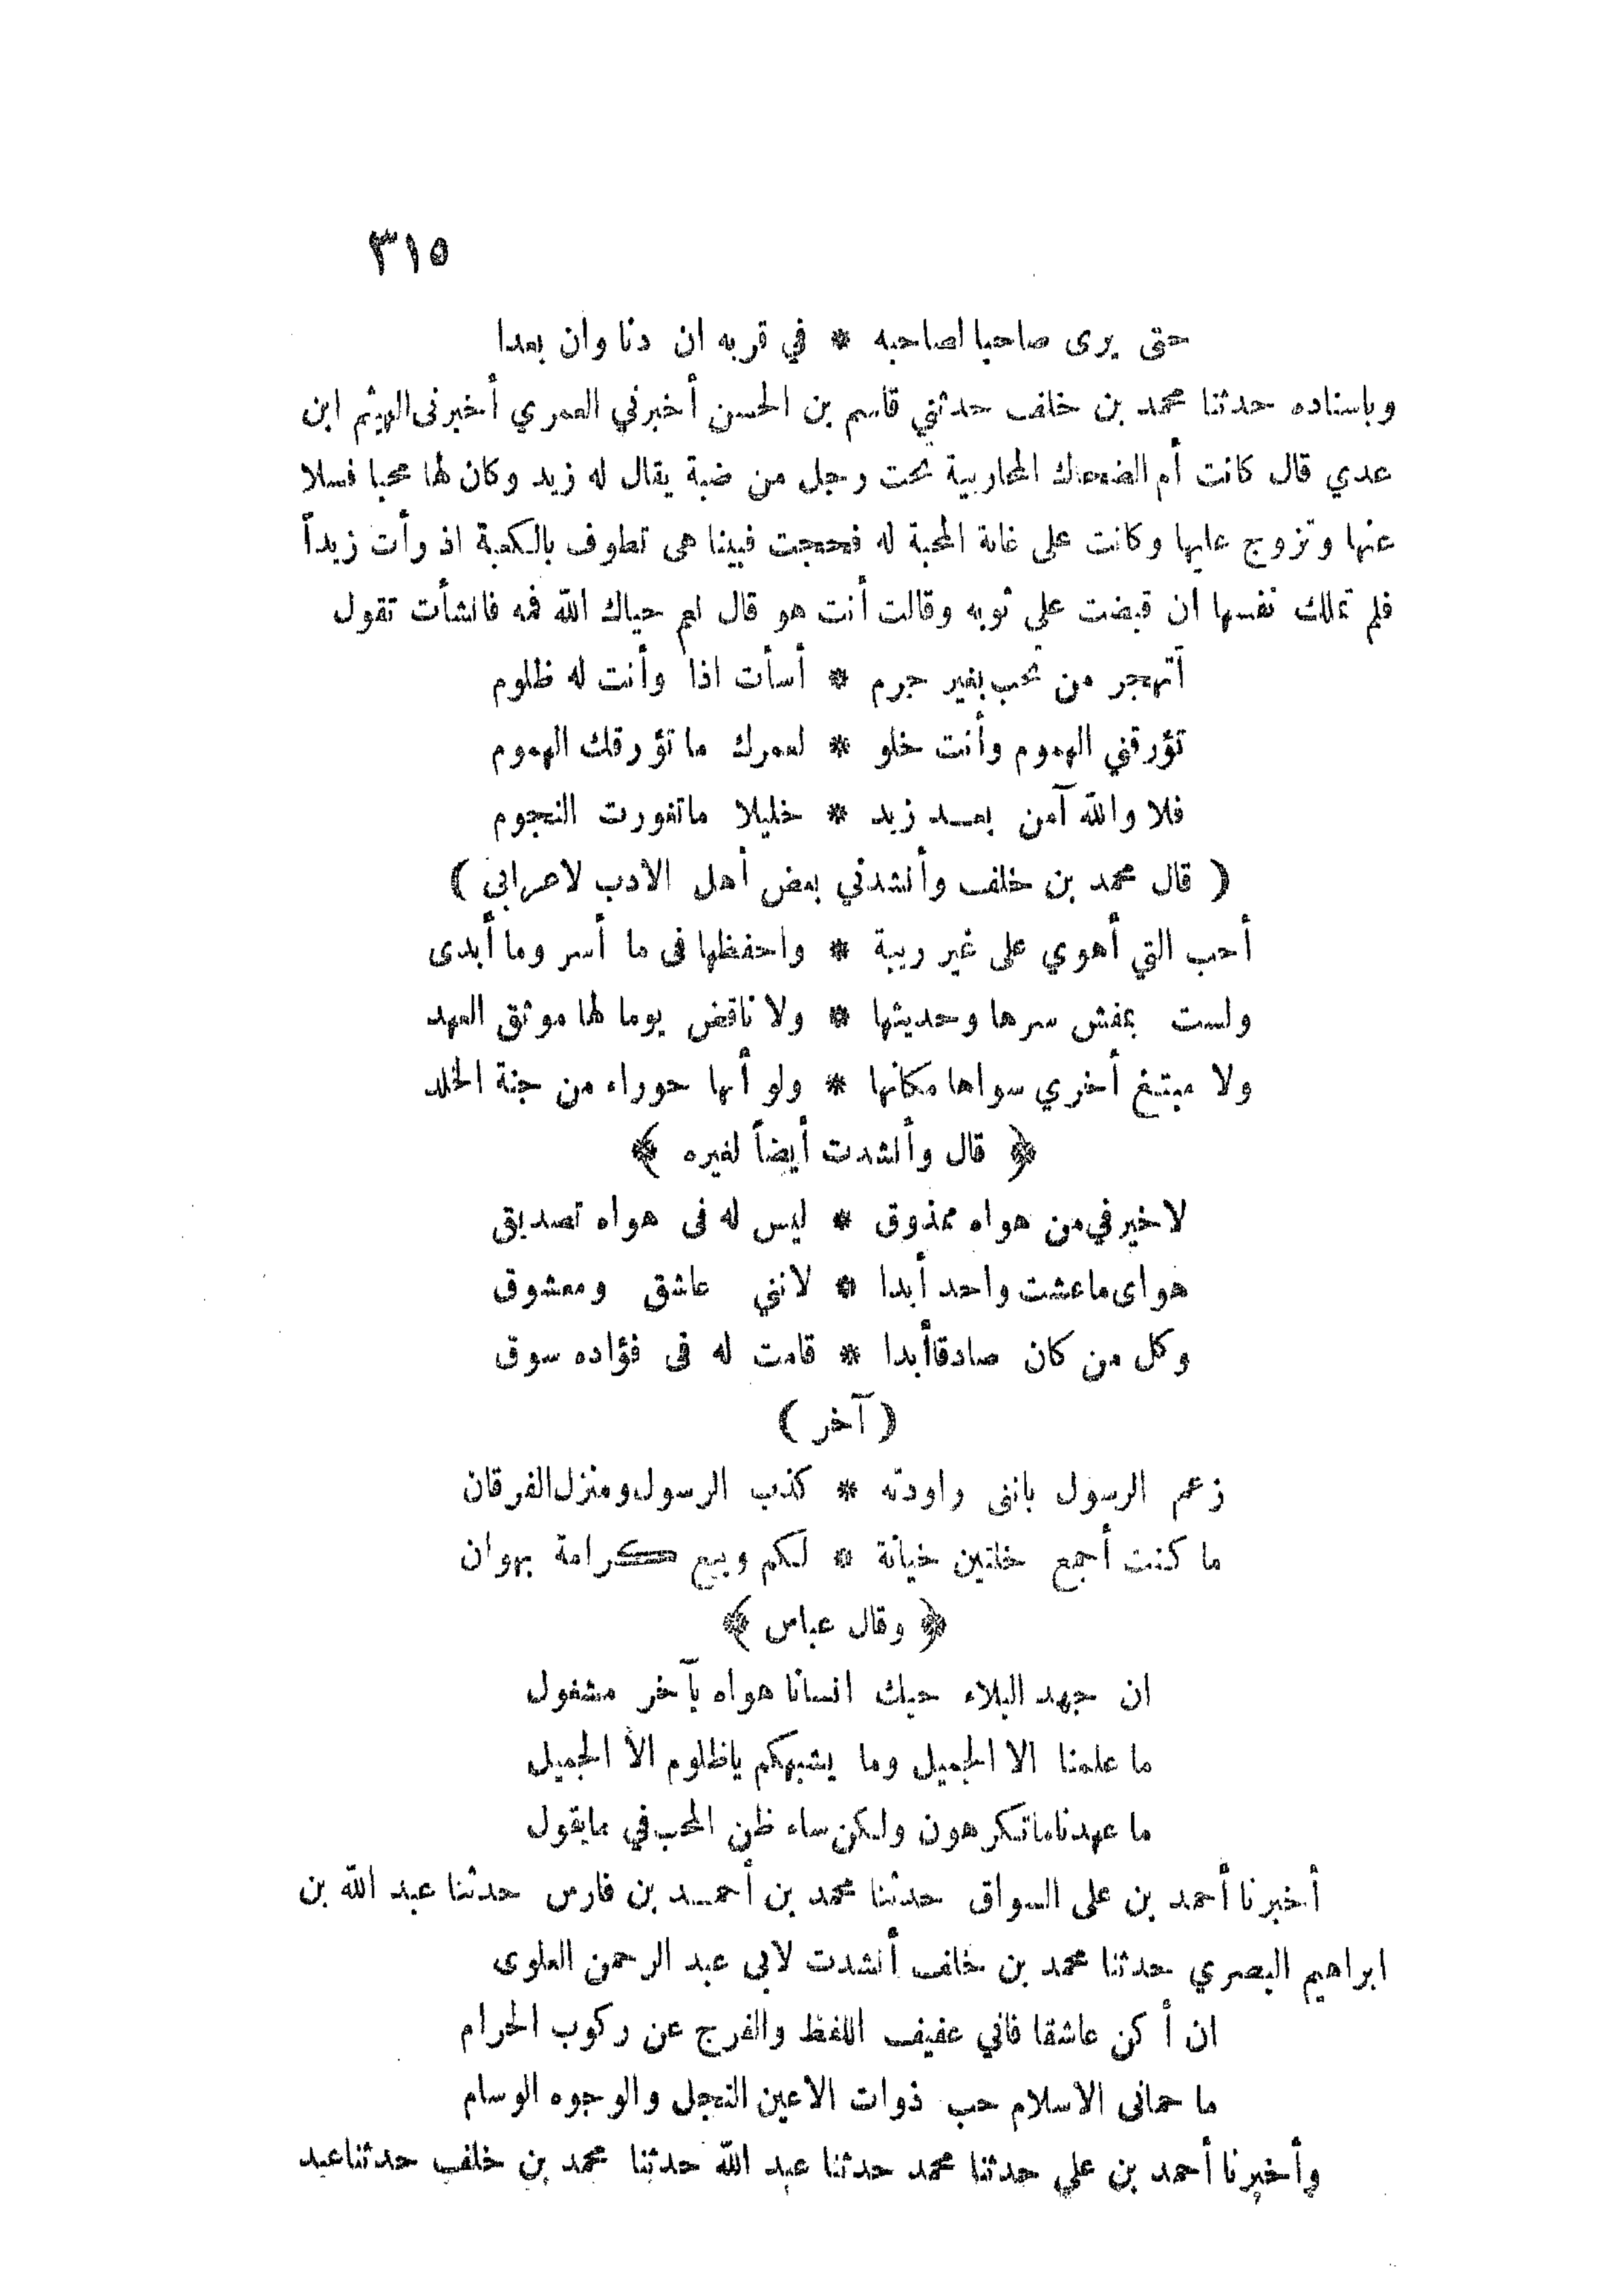 ٣١٥
حتى يرى صاحبا لصاحبه * في قربه ان دنا وان بعدا
وباسناده حدثنا محمد بن خلف حدثني قاسم بن الحسن أخبرني العمري أخبرنى الهيثم ابن
عدي قال كانت أم الضحاك المحاربية تحت رجل من ضبة يقال له زيد وكان لها محبا فسلا
عنها وتزوج عليها وكانت على غاية المحبة له فحججت فبينا هى تطوف بالكعبة اذ رأت زيداً
فلم تملك نفسها ان قبضت على ثوبه وقالت أنت هو قال نعم حياك الله فمه فانشأت تقول
أتهجر من تحب بغير جرم * أسأت اذا وأنت له ظلوم
تؤرقني الهموم وأنت خلو * لعمرك ما تؤرقك الهموم
فلا والله آمن بعد زيد * خليلا ماتغورت النجوم
( قال محمد بن خلف وأنشدني بعض أهل الأدب لاعرابي )
أحب التي أهوي على غير ريبة * واحفظها فى ما أسر وما أبدى
ولست بمفش سرها وحديثها * ولا ناقض يوما لها موثق العهد
ولا مبتغ أخري سواها مكانها * ولو أنها حوراء من جنة الخلد
﴿ قال وأنشدت أيضاً لغيره ﴾
لا خير في من هواه ممذوق * ليس له فى هواه تصديق
هواى ماعشت واحد أبدا * لانني عاشق ومعشوق
وكل من كان صادقا أبدا * قامت له فى فؤاده سوق
( آخر )
زعم الرسول بانى راودته * كذب الرسول ومنزل الفرقان
ما كنت أجمع خلتين خيانة * لكم وبيع كرامة بهوان
﴿ وقال عباس ﴾
ان جهد البلاء حبك انسانا هواه بآخر مشغول
ما علمنا الا الجميل وما يشبهكم ياظلوم الأ الجميل
ما عهدنا ماتكرهون ولكن ساء ظن المحب في مايقول
أخبرنا أحمد بن على السواق حدثنا محمد بن أحمد بن فارس حدثنا عبد الله بن
ابراهيم البصري حدثنا محمد بن خلف أنشدت لابى عبد الرحمن العلوى
ان أكن عاشقا فاني عفيف اللفظ والفرج عن ركوب الحرام
ما حمانى الاسلام حب ذوات الاعين النجل والوجوه الوسام
وأخبرنا أحمد بن علي حدثنا محمد حدثنا عبد الله حدثنا محمد بن خلف حدثنا عبد